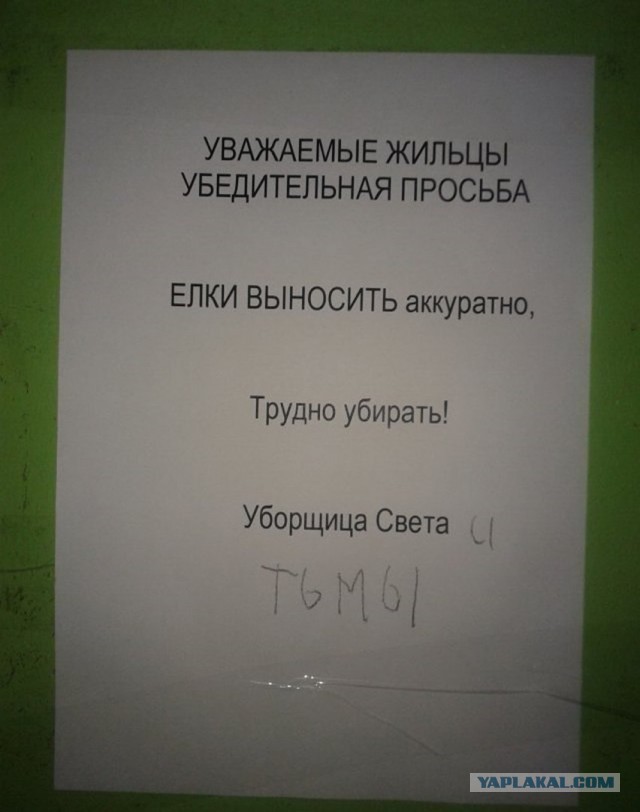 УВАЖАЕМЫЕ ЖИЛЬЦЫ
УБЕДИТЕЛЬНАЯ ПРОСЬБА
ЕЛКИ ВЫНОСИТЬ аккуратно,
Трудно убирать!
Уборщица Света и
ТЬМЫ
YAPLAKAL.COM